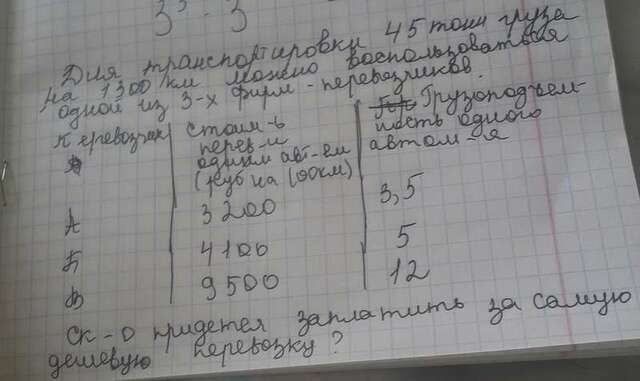 3³ · 3
Для транспортировки 45 тонн груза
на 1300 км можно воспользоваться
одной из 3-х фирм-перевозчиков.
Перевозчик стоим-ь перев-и одним авт-ем (руб на 100км) Грузоподъем-ность одного автом-я
А 3200 3,5
Б 4100 5
В 9500 12
Ск-о придется заплатить за самую
дешевую перевозку?